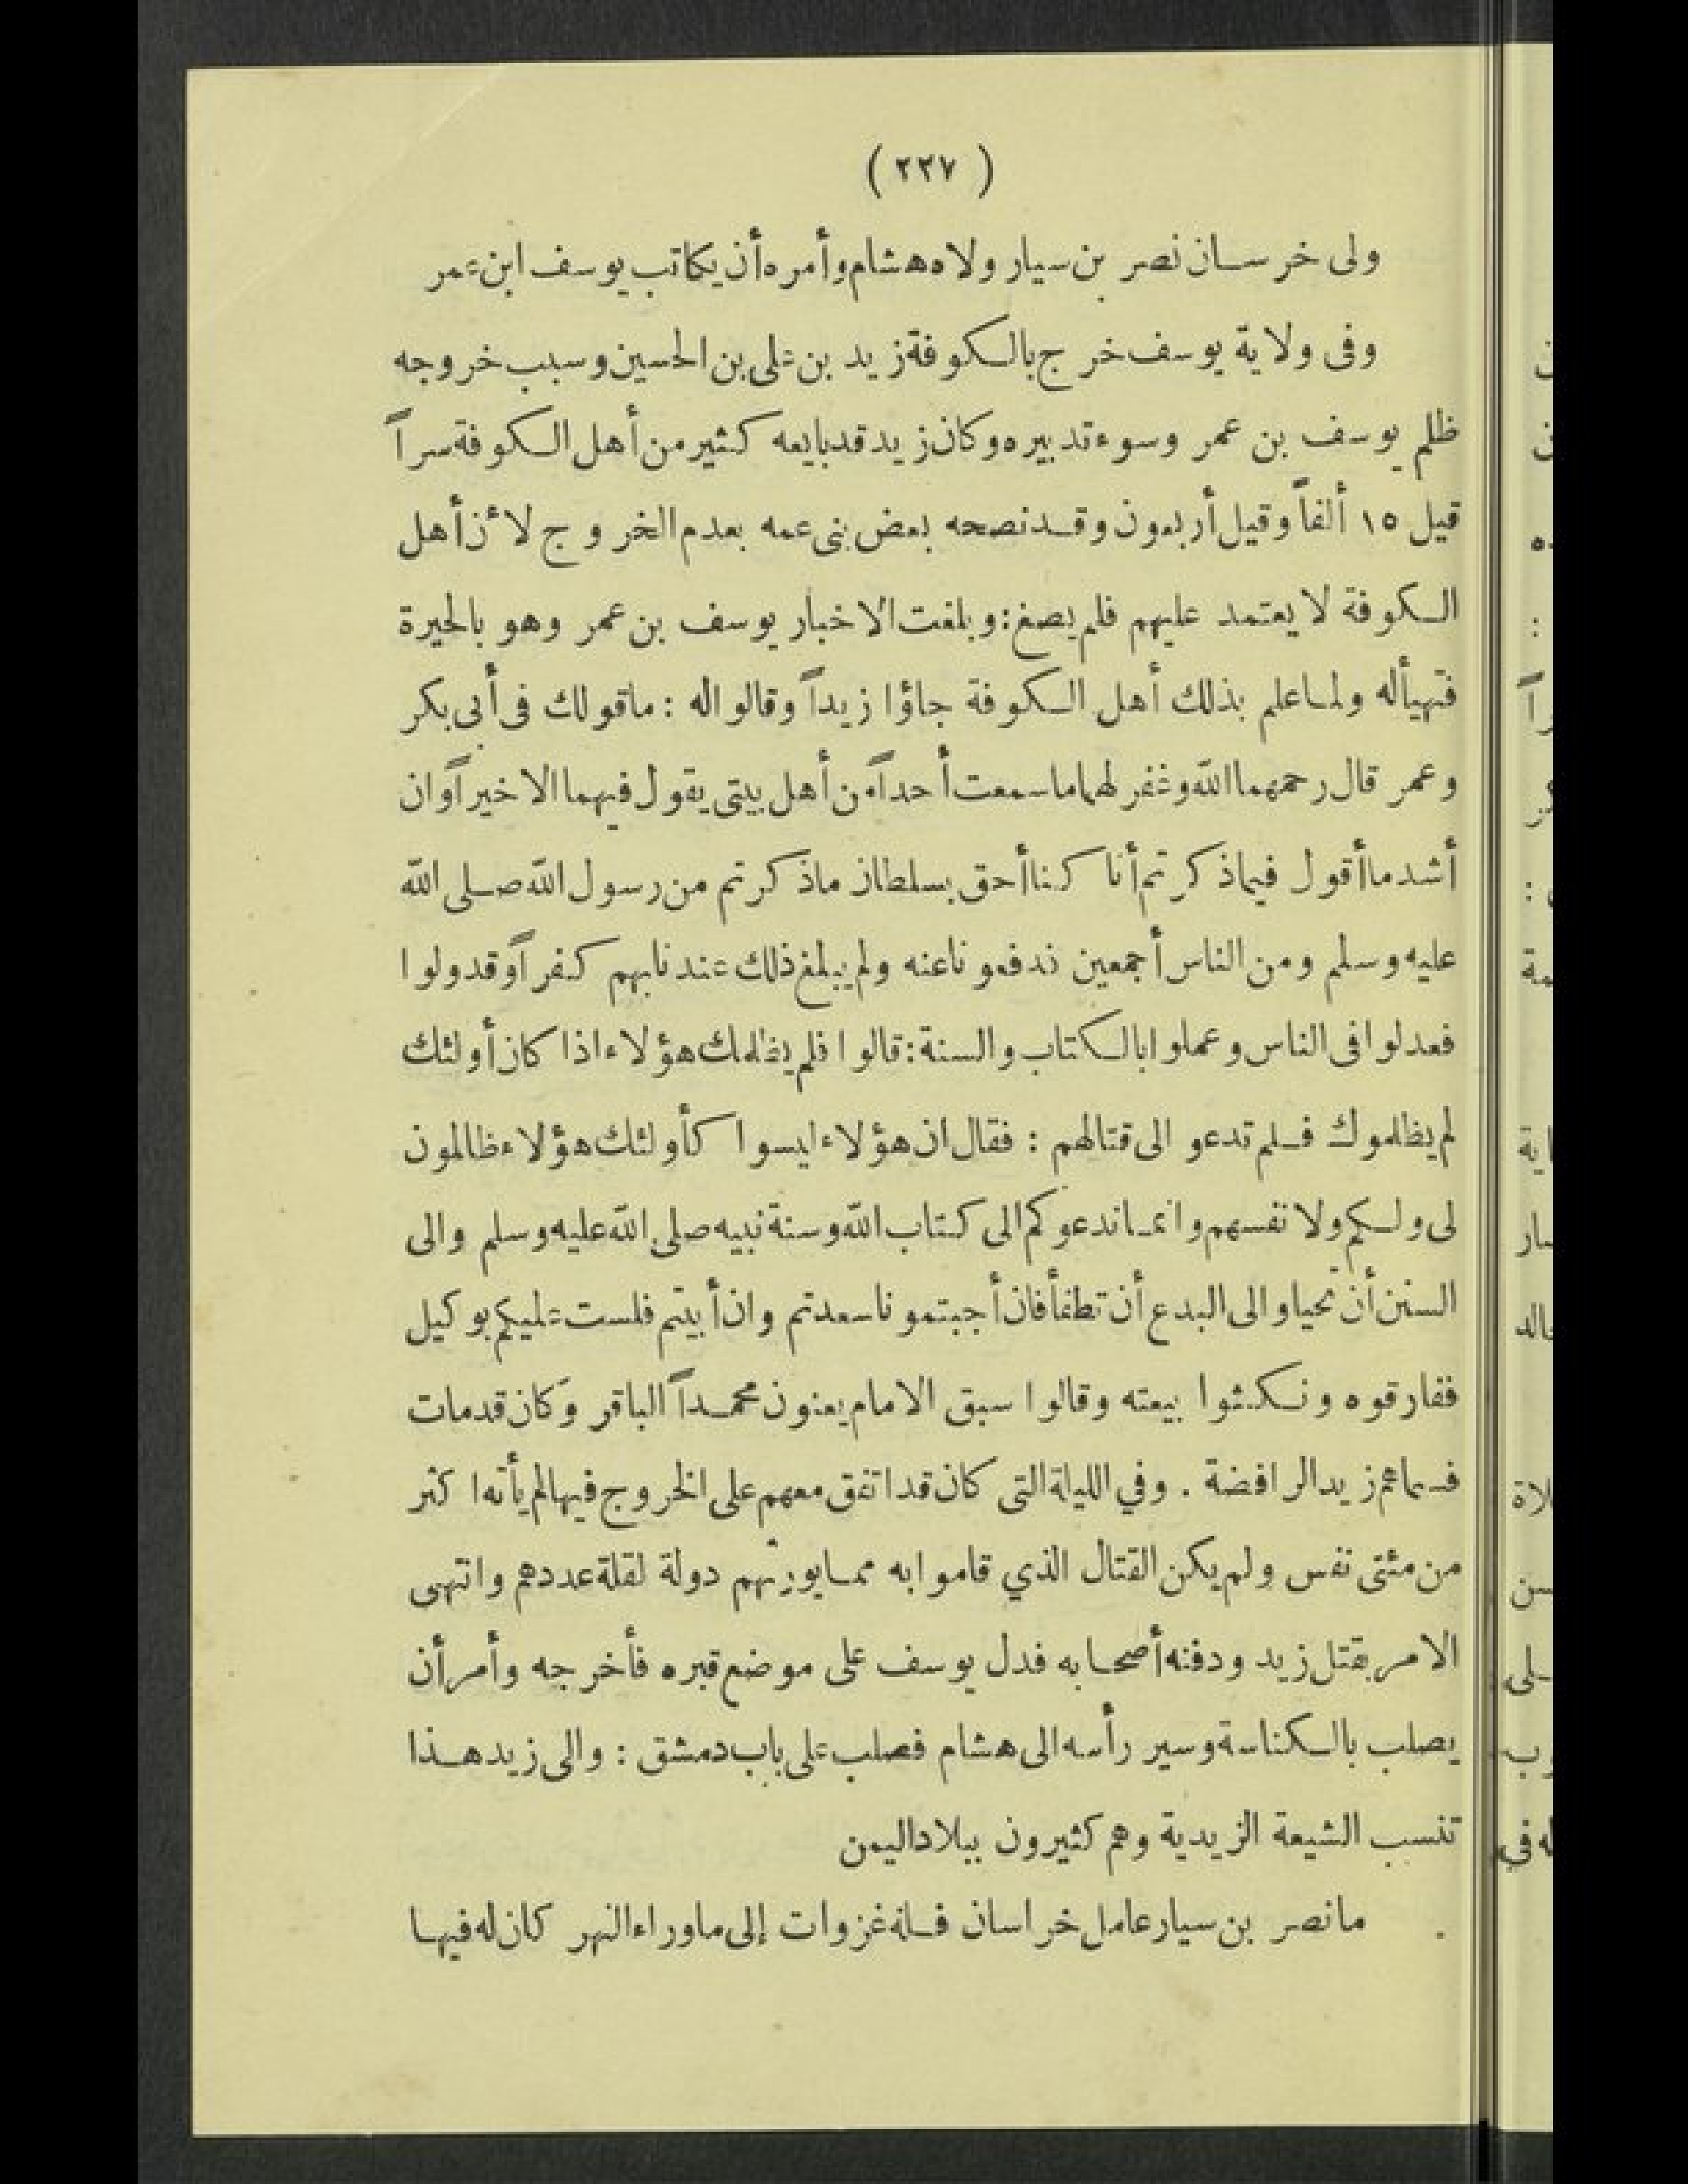 ( ٢٢٧ )
ولى خرسان نصر بن سيار ولاه هشام وأمره أن يكاتب يوسف ابن عمر
وفى ولاية يوسف خرج بالكوفة زيد بن على بن الحسين وسبب خروجه
ظلم يوسف بن عمر وسوء تدبيره وكان زيد قد بايعه كثير من أهل الكوفة سراً
قيل ١٥ ألفاً وقيل أربعون وقد نصحه بعض بنى عمه بعدم الخروج لأن أهل
الكوفة لا يعتمد عليهم فلم يصغ : وبلغت الاخبار يوسف بن عمر وهو بالحيرة
فتهيأ له ولما علم بذلك أهل الكوفة جاؤا زيداً وقالوا له : ما قولك فى أبى بكر
وعمر قال رحمهما الله وغفر لهما ما سمعت أحداً من أهل بيتى يقول فيهما الا خيراً وان
أشد ما أقول فيما ذكرتم أنا كنا أحق بسلطان ما ذكرتم من رسول الله صلى الله
عليه وسلم ومن الناس أجمعين ندفعونا عنه ولم يبلغ ذلك عندنا بهم كفراً وقد ولوا
فعدلوا فى الناس وعملوا بالكتاب والسنة : قالوا فلم يظلمك هؤلاء اذا كان أولئك
لم يظلموك فلم تدعو الى قتالهم : فقال ان هؤلاء ليسوا كأولئك هؤلاء ظالمون
لى ولكم ولا نفسهم وانما ندعوكم الى كتاب الله وسنة نبيه صلى الله عليه وسلم والى
السنن أن تحيا والى البدع أن تطفأ فان أجبتمونا سعدتم وان أبيتم فلست عليكم بوكيل
ففارقوه ونكثوا بيعته وقالوا سبق الامام يعنون محمداً الباقر وكان قد مات
فسماهم زيد الرافضة . وفي الليلة التى كان قد اتفق معهم على الخروج فيها لم يأته اكثر
من مئتى نفس ولم يكن القتال الذي قاموا به مما يورثهم دولة لقلة عددهم وانتهى
الامر بقتل زيد ودفنه أصحابه فدل يوسف على موضع قبره فأخرجه وأمر أن
يصلب بالكناسة وسير رأسه الى هشام فصلب على باب دمشق : والى زيد هذا
تنسب الشيعة الزيدية وهم كثيرون ببلاد اليمن
ما نصر بن سيار عامل خراسان فله غزوات إلى ما وراء النهر كان له فيها